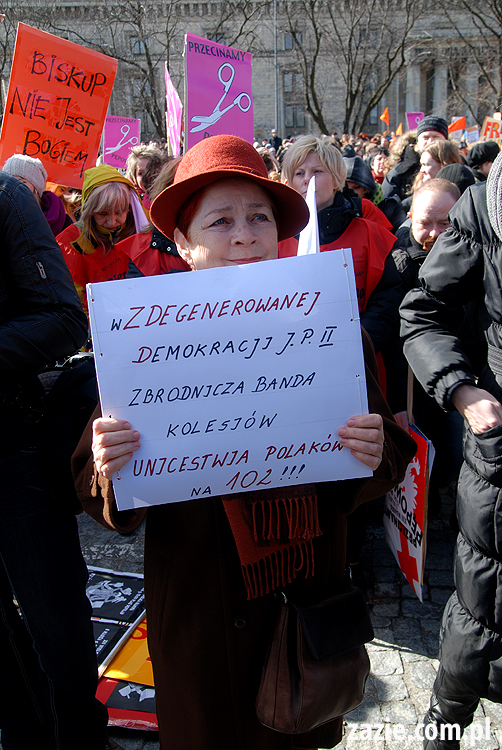 BISKUP
NIE JEST
BOGIEM
PRZECINAMY
wZDEGENEROWANEJ
DEMOKRACJI J.P. II
ZBRODNICZA BANDA
KOLESIÓW
UNICESTWIA POLAKÓW
NA 102 !!!
zazie.com.pl